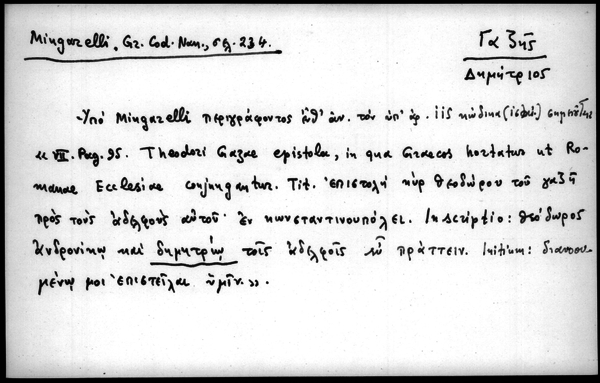 Mingarelli, Gr. Cod. Nan., σελ. 234.
Γαζῆς
Δημήτριος
Ὑπό Mingarelli περιγράφοντος ἐν τὸν ὑπ' ἀρ. κώδικα
« VII. Pag. 95. Theodori Gazae epistola, in qua Graecos hortatur ut Ro-
manae Ecclesiae conjungantur. Tit. Ἐπιστολὴ κὺρ Θεοδώρου τοῦ γαζῆ
πρὸς τοὺς ἀδελφοὺς αὐτοῦ ἐν κωνσταντινουπόλει. Inscriptio: Θεόδωρος
ἀνδρονίκῳ καὶ δημητρίῳ τοῖς ἀδελφοῖς εὖ πράττειν. Initium: διανοου-
μένῳ μοι ἐπιστεῖλαι ὑμῖν.».